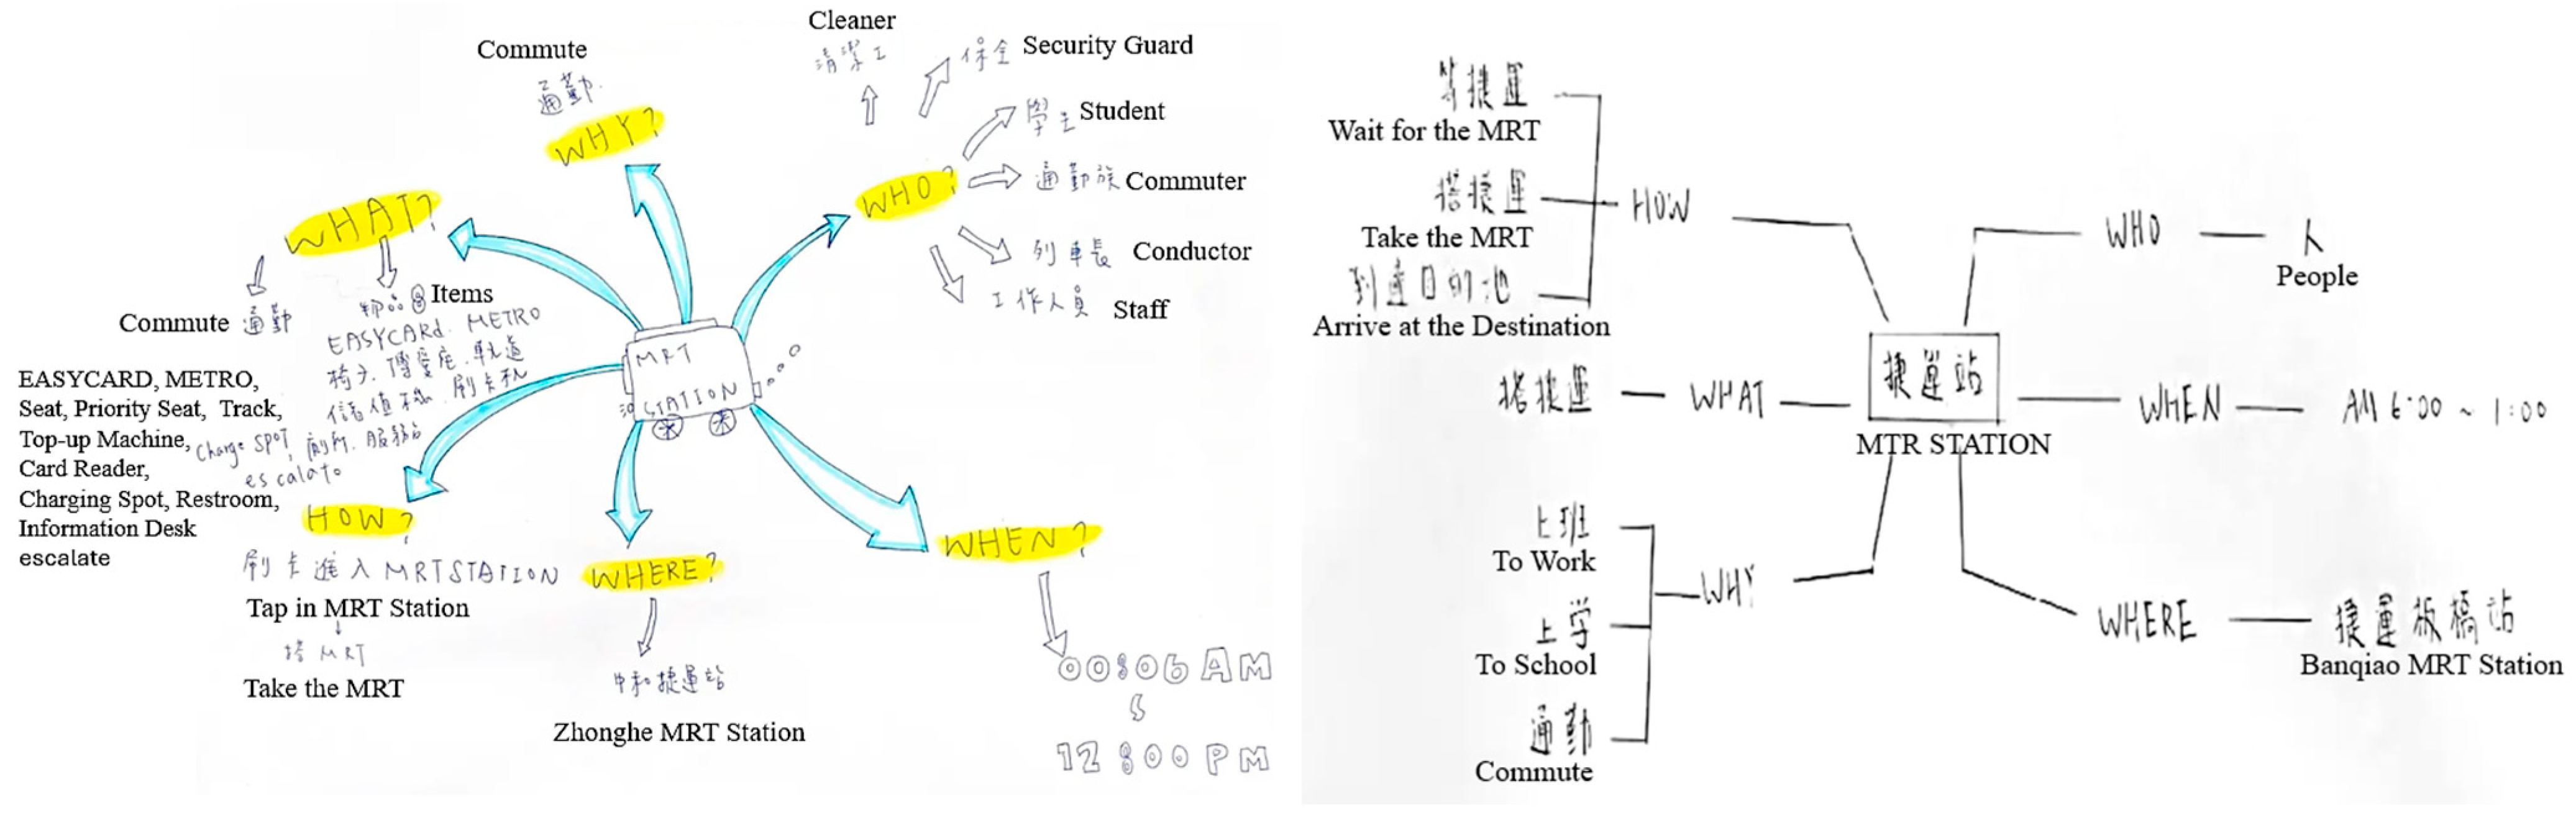 Cleaner
清潔工
保全 Security Guard
Commute
通勤
WHY?
學生 Student
WHO?
通勤族 Commuter
列車長 Conductor
工作人員 Staff
WHAT?
Commute 通勤
物品 Items
EASYCARd. METRO
椅子. 博愛座. 軌道
儲值機. 刷卡機
Charge SPOT, 廁所. 服務台
escalato
EASYCARD, METRO,
Seat, Priority Seat, Track,
Top-up Machine,
Card Reader,
Charging Spot, Restroom,
Information Desk
escalate
MRT
STATION
HOW?
刷卡進入MRTSTATION
Tap in MRT Station
↓
搭 MRT
Take the MRT
WHERE?
中和捷運站
Zhonghe MRT Station
WHEN?
00:06 AM
12:00 PM
等捷運
Wait for the MRT
搭捷運
Take the MRT
到達目的地
Arrive at the Destination
HOW
WHO
人
People
搭捷運
WHAT
捷運站
MTR STATION
WHEN
AM 6:00 ~ 1:00
上班
To Work
上学
To School
通勤
Commute
WHY
WHERE
捷運板橋站
Banqiao MRT Station